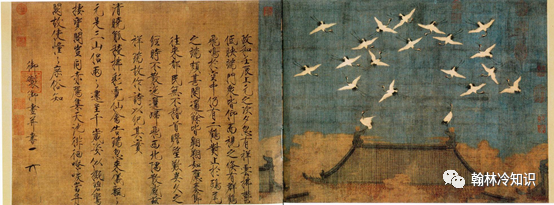 政和壬辰上元之次夕忽有祥雲拂鬱
低映端門眾皆仰而視之倏有群鶴
飛鳴於空中仍有二鶴對止於鴟尾
之端頗甚閒適餘皆翱翔如應奏節
往來都民無不稽首瞻望歎異久之
經時不散迤邐歸飛西北隅散感茲
祥瑞故作詩以紀其實
清曉觚稜拂彩霓仙禽告瑞忽來儀飄飄
元是三山侶兩兩還呈千歲姿似擬碧鸞
棲寶閣豈同赤雁集天池徘徊嘹唳當丹
闕故使憧憧庶俗知
御製御畫并書
翰林冷知识